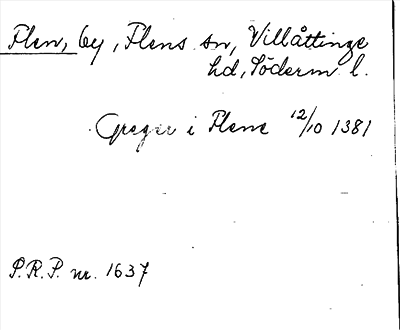 Flen, by, Flens sn, Villåttinge
hd, Söderm l.
Greger i Flene 12/10 1381
P.R.P. nr. 1637